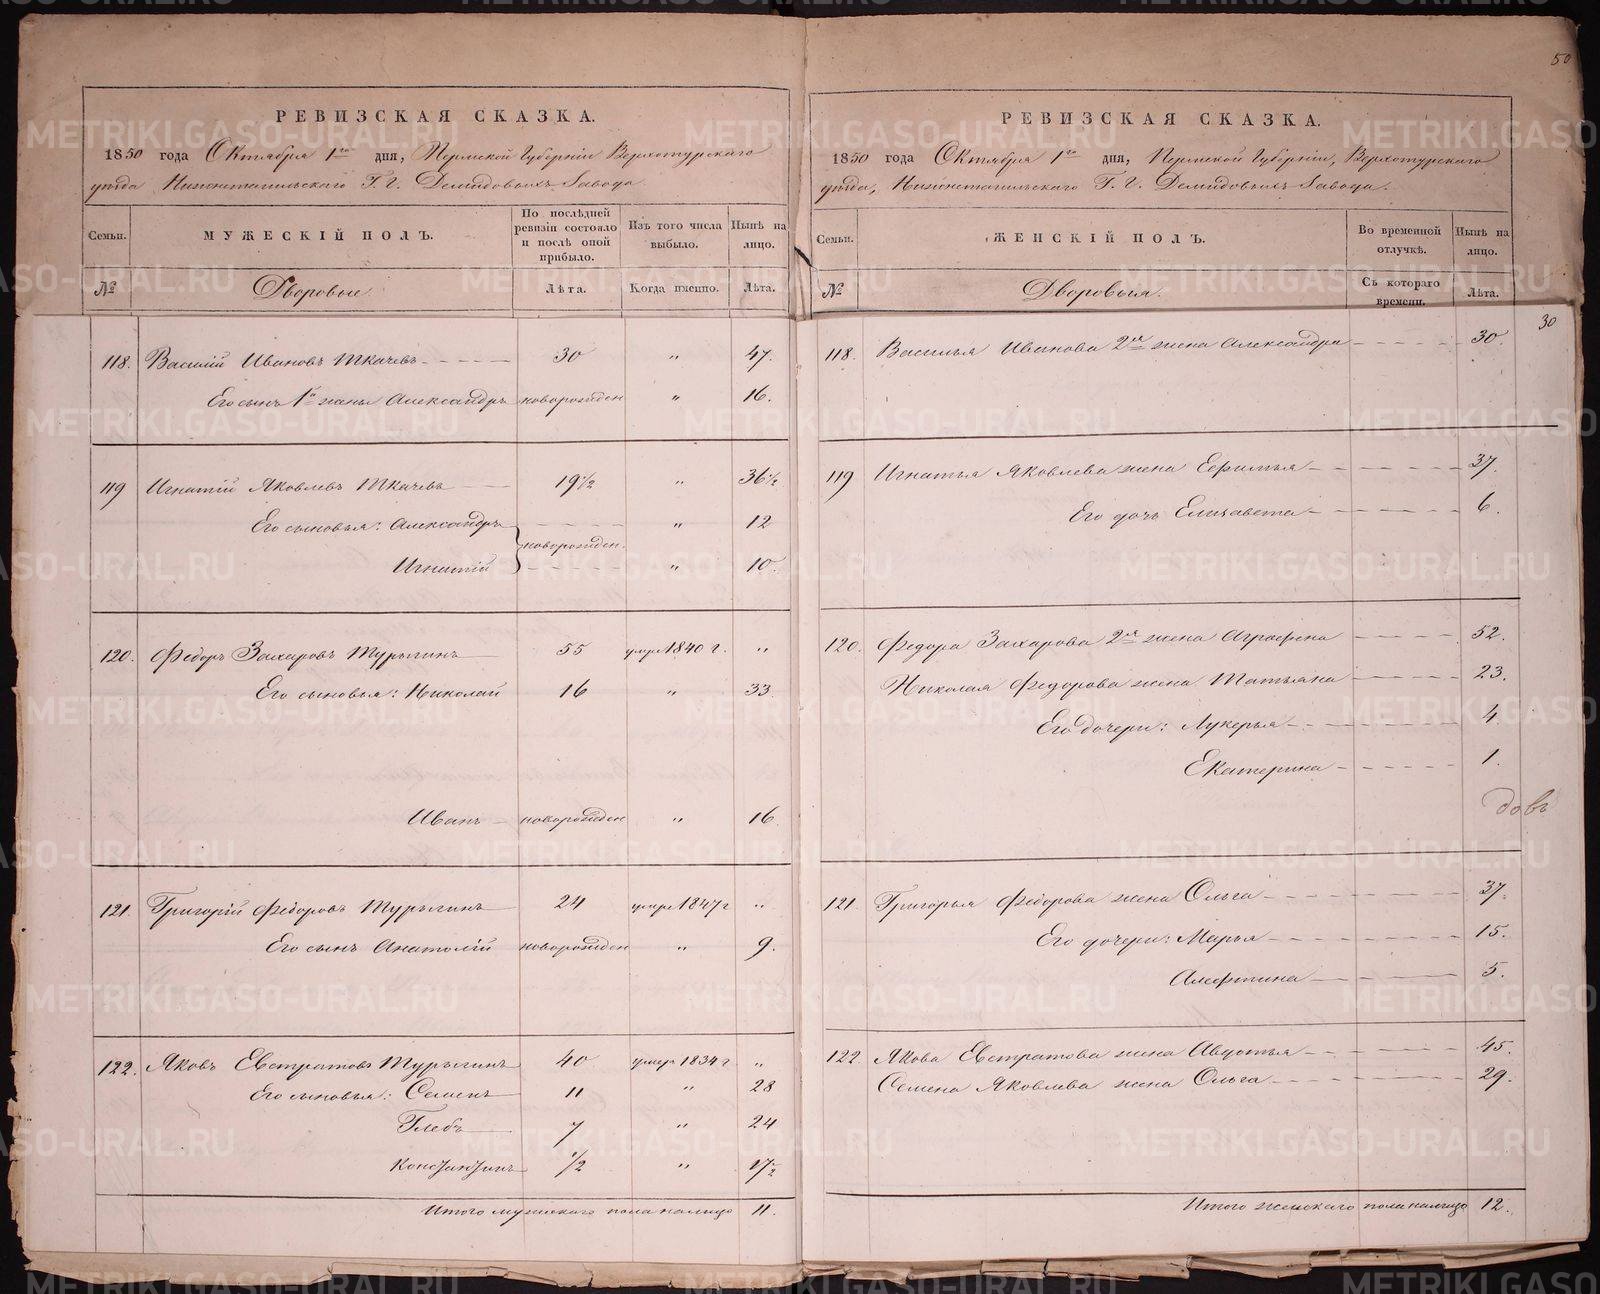 50
РЕВИЗСКАЯ СКАЗКА.
1850 года Октября 1го дня, Пермской Губернiи Верхотурскаго
уѣзда Нижнетагильскаго Г. г. Демидовыхъ Завода.
Семьи. МУЖЕСКІЙ ПОЛЪ. По послѣдней ревизіи состояло и послѣ оной прибыло. Изъ того числа выбыло. Нынѣ на лицо.
№ Дворовые Лѣта. Когда именно. Лѣта.
118. Василій Ивановъ Ткачевъ 30 " 47.
Его сынъ 1й жены Александръ новорожден " 16.
119 Игнатій Яковлевъ Ткачевъ 19 1/2 " 36 1/2
Его сыновья: Александръ " 12
новорожден.
Игнатій " 10.
120. Федоръ Захаровъ Турыгинъ 55 умре 1840 г. "
Его сыновья: Николай 16 " 33
Иванъ новорожден " 16
121. Григорій Федоровъ Турыгинъ 24 умре 1847 г "
Его сынъ Анатолій новорожден " 9.
122. Яковъ Евстратовъ Турыгинъ 40 умер 1834 г "
Его сыновья: Семенъ 11 " 28
Глебъ 7 " 24
Константинъ 1/2 " 17 1/2
Итого мужскаго пола налицо 11.
РЕВИЗСКАЯ СКАЗКА.
1850 года Октября 1го дня, Пермской Губернiи, Верхотурскаго
уѣзда, Нижнетагильскаго Г. г. Демидовыхъ Завода.
Семьи. ЖЕНСКІЙ ПОЛЪ. Во временной отлучкѣ. Нынѣ на лицо.
№ Дворовыя. Съ котораго времени. Лѣта.
30
118. Василья Иванова 2я жена Александра 30.
119 Игнатья Яковлева жена Ефимья 37.
Его дочь Елизавета 6.
120. Федора Захарова 2я жена Аграфена 52.
Николая Федорова жена Татьяна 23.
Его дочери: Лукерья 4
Екатерина 1.
довъ
121. Григорья Федорова жена Ольга 37.
Его дочери: Марья 15.
Алефтина 5.
122. Якова Евстратова жена Авдотья 45.
Семена Яковлева жена Ольга 29.
Итого женскаго пола налицо 12.
METRIKI.GASO-URAL.RU